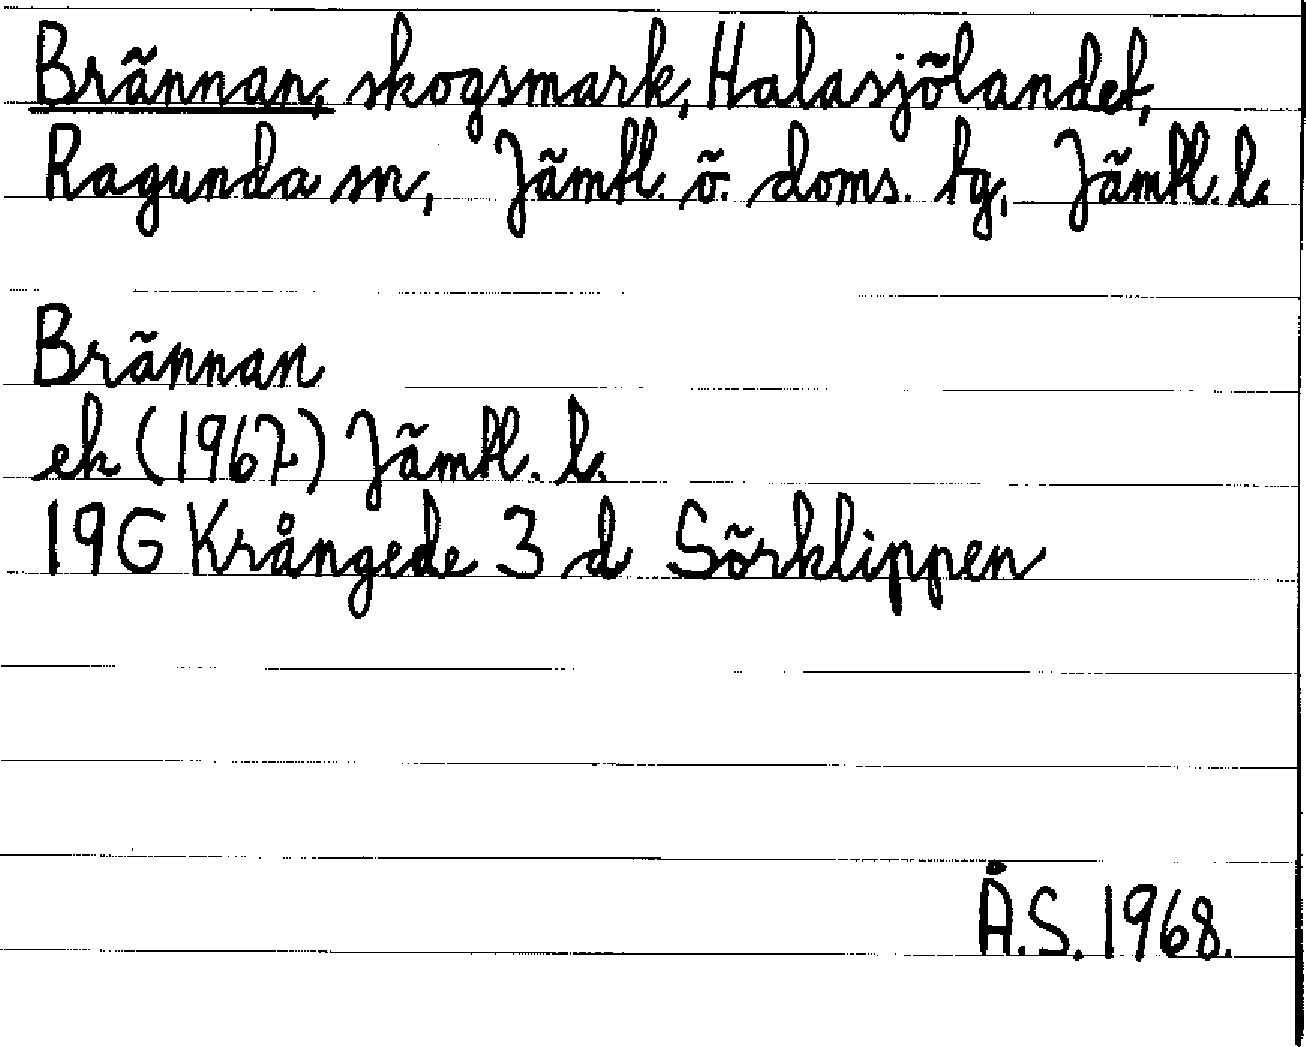 Brännan, skogsmark, Halasjölandet,
Ragunda sn, Jämtl. ö. doms. tg, Jämtl. l.
Brännan
ek (1967) Jämtl. l.
19G Krångede 3 d Sörklippen
Å.S. 1968.